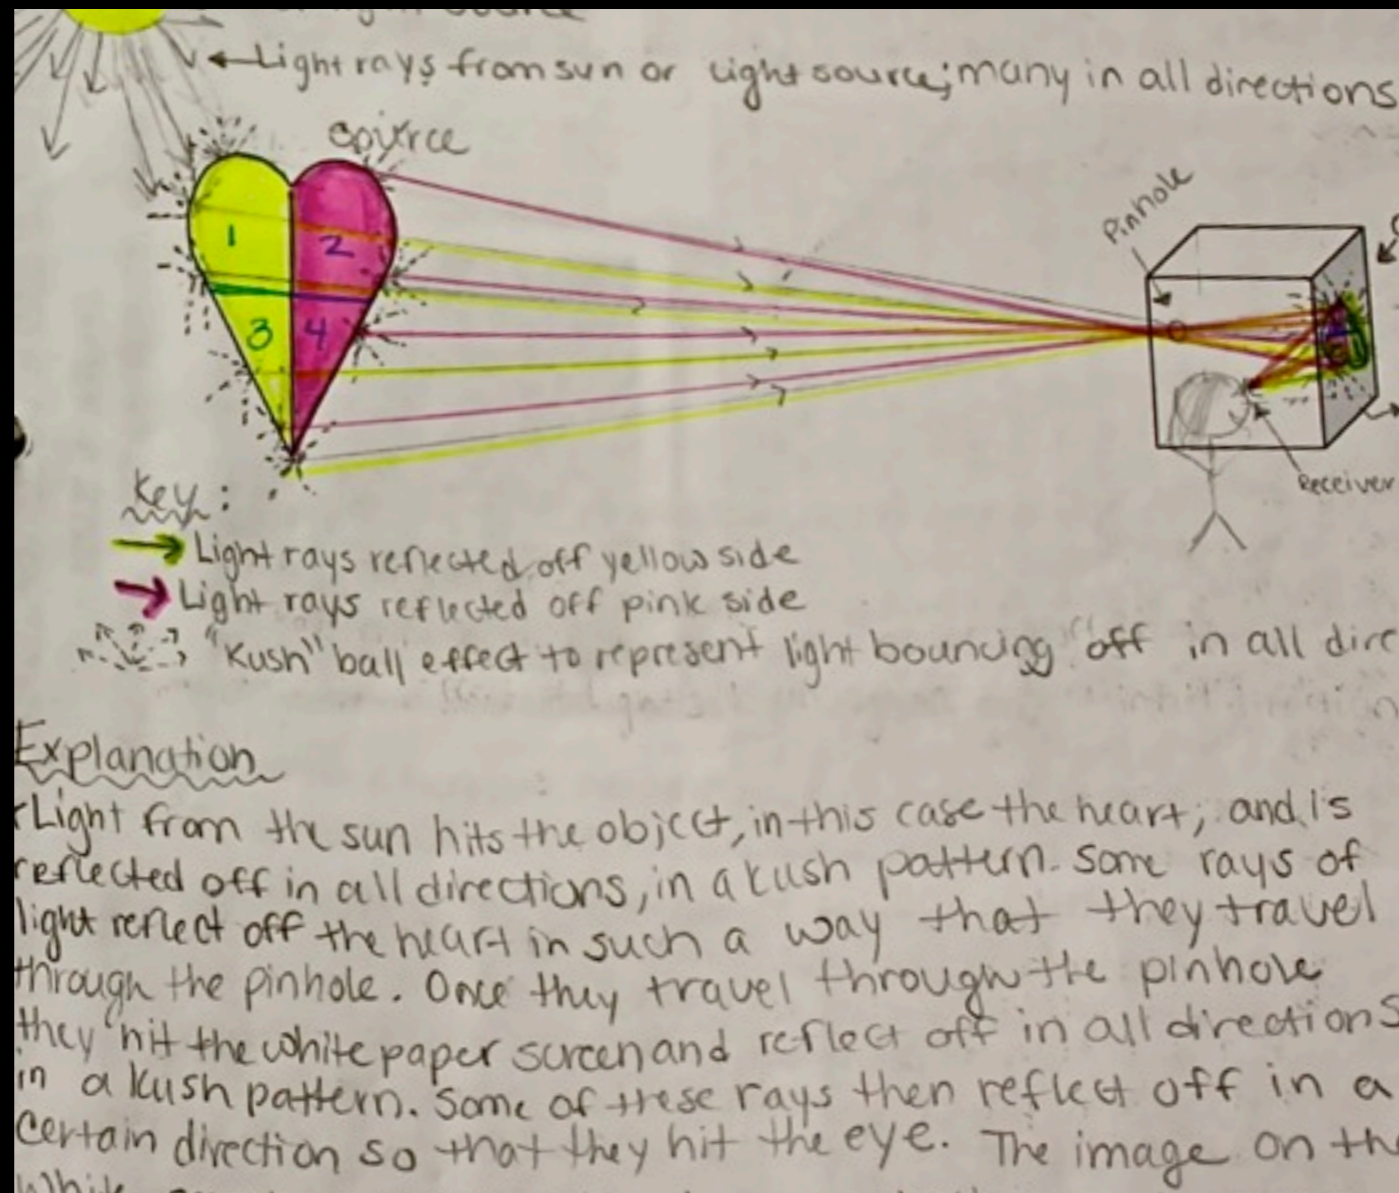 light source
Light rays from sun or light source; many in all directions
source
1
2
3
4
Pinhole
Receiver
Key:
Light rays reflected off yellow side
Light rays reflected off pink side
"Kush" ball effect to represent light bouncing off in all dire
Explanation
Light from the sun hits the object, in this case the heart, and is
reflected off in all directions, in a kush pattern. Some rays of
light reflect off the heart in such a way that they travel
through the pinhole. Once they travel through the pinhole
they hit the white paper screen and reflect off in all directions
in a kush pattern. Some of these rays then reflect off in a
certain direction so that they hit the eye. The image on th